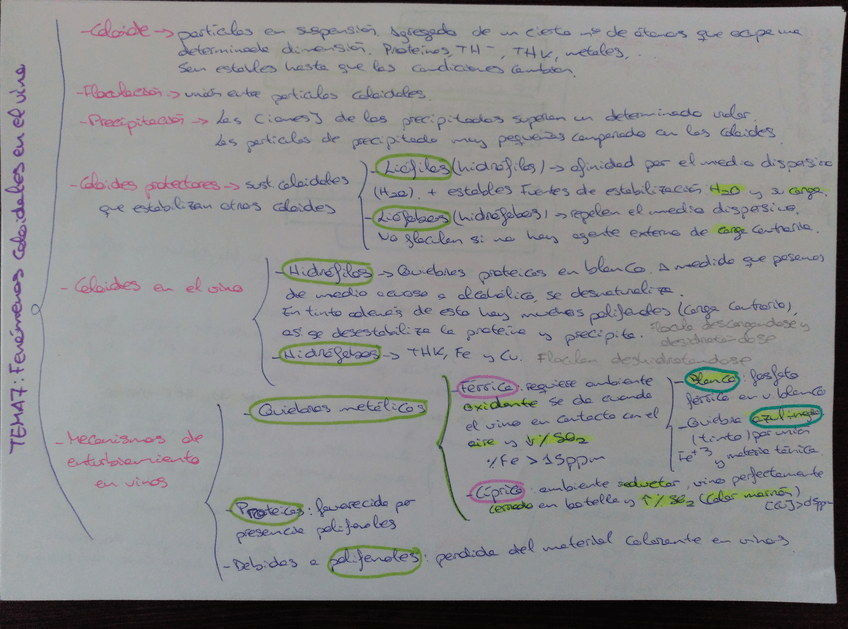 TEMA 7: Fenómenos coloidales en el vino
- Coloide → partículas en suspensión. Agregado de un cierto nº de átomos que ocupe una
determinada dimensión. Proteínas, TH⁻, THK, metales,...
Son estables hasta que las condiciones cambien.
- Floculación → unión entre partículas coloidales.
- Precipitación → Las [iones] de los precipitados superan un determinado valor.
Las partículas de precipitado muy pequeñas comparado con los coloides
- Coloides protectores → sust. coloidales
que estabilizan otros coloides
- Liófilos (hidrófilos) → afinidad por el medio dispersivo
(H₂O), + estables. Fuentes de estabilización H₂O y su carga.
- Liófobos (hidrófobos) → repelen el medio dispersivo.
No floculan si no hay agente externo de carga contraria.
- Coloides en el vino
- Hidrófilos → Quiebras proteicas en blanco. A medida que pasamos
de medio acuoso a alcohólico, se desnaturaliza.
En tinto además de esto hay muchos polifenoles (carga contraria),
así se desestabiliza la proteína y precipita. Flocula descargándose y
desidratándose
- Hidrófobos → THK, Fe y Cu. Floculan deshidratándose
- Mecanismos de
enturbiamiento
en vinos
- Quiebras metálicas
- Férrica: requiere ambiente
oxidante se da cuando
el vino en contacto con el
aire y ↓% SO₂
% Fe > 15 ppm
- Blanca: fosfato
férrico en v. blanco
- Quiebra azul/negra
(tinto) por unión
Fe⁺³ y materia tánica
- Cúprica: ambiente reductor, vino perfectamente
cerrado en botella y ↑% SO₂ (color marrón)
[Cu] > 0,5 ppm
- Proteicas: favorecida por
presencia polifenoles
- Debidas a polifenoles: perdida del material colorante en vinos